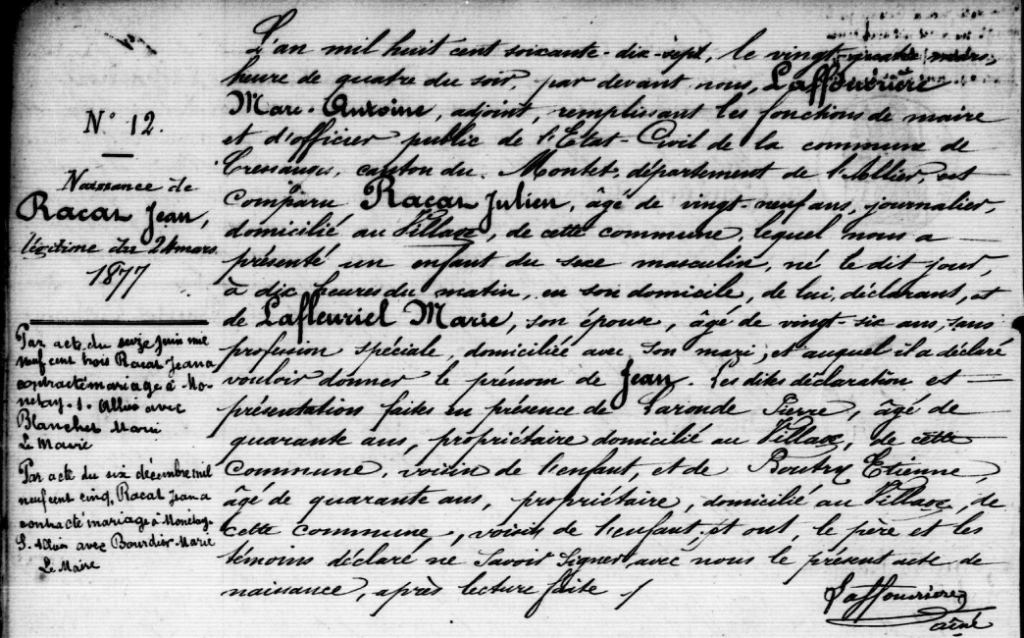 N° 12.
Naissance de
Racat Jean,
légitime du 24 mars
1877
Par acte du seize juin mil
neuf cent trois Racat Jean a
contracté mariage à Mo-
netay-s-Allier avec
Blanchet Marie
Le Maire
Par acte du six décembre mil
neuf cent cinq, Racat Jean a
contracté mariage à Monétay
S. Allier avec Bourdier Marie
Le Maire
L'an mil huit cent soixante-dix-sept, le vingt-quatre mars,
heure de quatre du soir, par devant nous, Laffouvrière
Marc-Antoine, adjoint, remplissant les fonctions de maire
et d'officier public de l'Etat-Civil de la commune de
Cressanges, canton du Montet, département de l'Allier, est
comparu Racat Julien, âgé de vingt-neuf ans, journalier,
domicilié au Village, de cette commune, lequel nous a
présenté un enfant du sexe masculin, né le dit jour,
à dix heures du matin, en son domicile, de lui, déclarant, et
de Lafleuriel Marie, son épouse, âgé de vingt-six ans, sans
profession spéciale, domiciliée avec son mari, et auquel il a déclaré
vouloir donner le prénom de Jean. Les dites déclaration et
présentation faites en présence de Laronde Pierre, âgé de
quarante ans, propriétaire domicilié au Village, de cette
commune, voisin de l'enfant, et de Boutry Etienne,
âgé de quarante ans, propriétaire, domicilié au Village, de
cette commune, voisin de l'enfant, et ont, le père et les
témoins déclaré ne savoir signer, avec nous le présent acte de
naissance, après lecture faite /
Laffouvrière
aîné